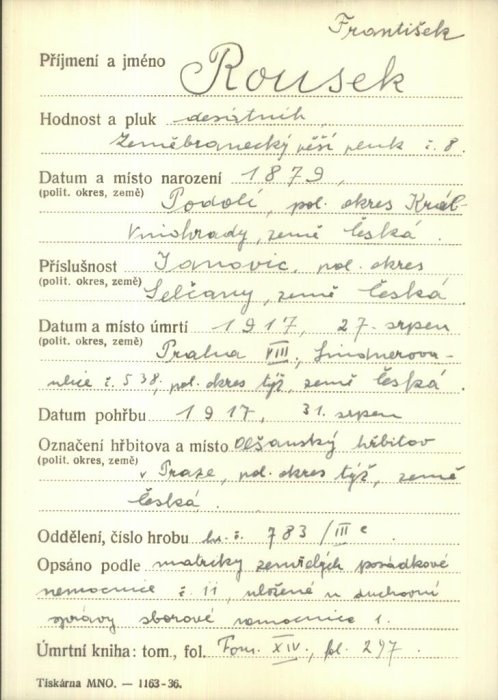 František
Příjmení a jméno Rousek
Hodnost a pluk desátník,
Zeměbranecký pěší pluk č. 8.
Datum a místo narození 1879,
(polit. okres, země) Podolí, pol. okres Král.
Vinohrady, země Česká.
Příslušnost Janovic, pol. okres
(polit. okres, země) Selčany, země Česká
Datum a místo úmrtí 1917, 27. srpen
(polit. okres, země) Praha VIII, Lindnerova
ulice č. 538, pol. okres týž, země Česká.
Datum pohřbu 1917, 31. srpen
Označení hřbitova a místo Olšanský hřbitov
(polit. okres, země) v Praze, pol. okres týž, země
Česká.
Oddělení, číslo hrobu hr. č. 783/III c
Opsáno podle matriky zemřelých posádkové
nemocnice č. 11, uložené u duchovní
správy sborové nemocnice 1.
Úmrtní kniha: tom., fol. Tom. XIV., fol. 247.
Tiskárna MNO. — 1163-36.